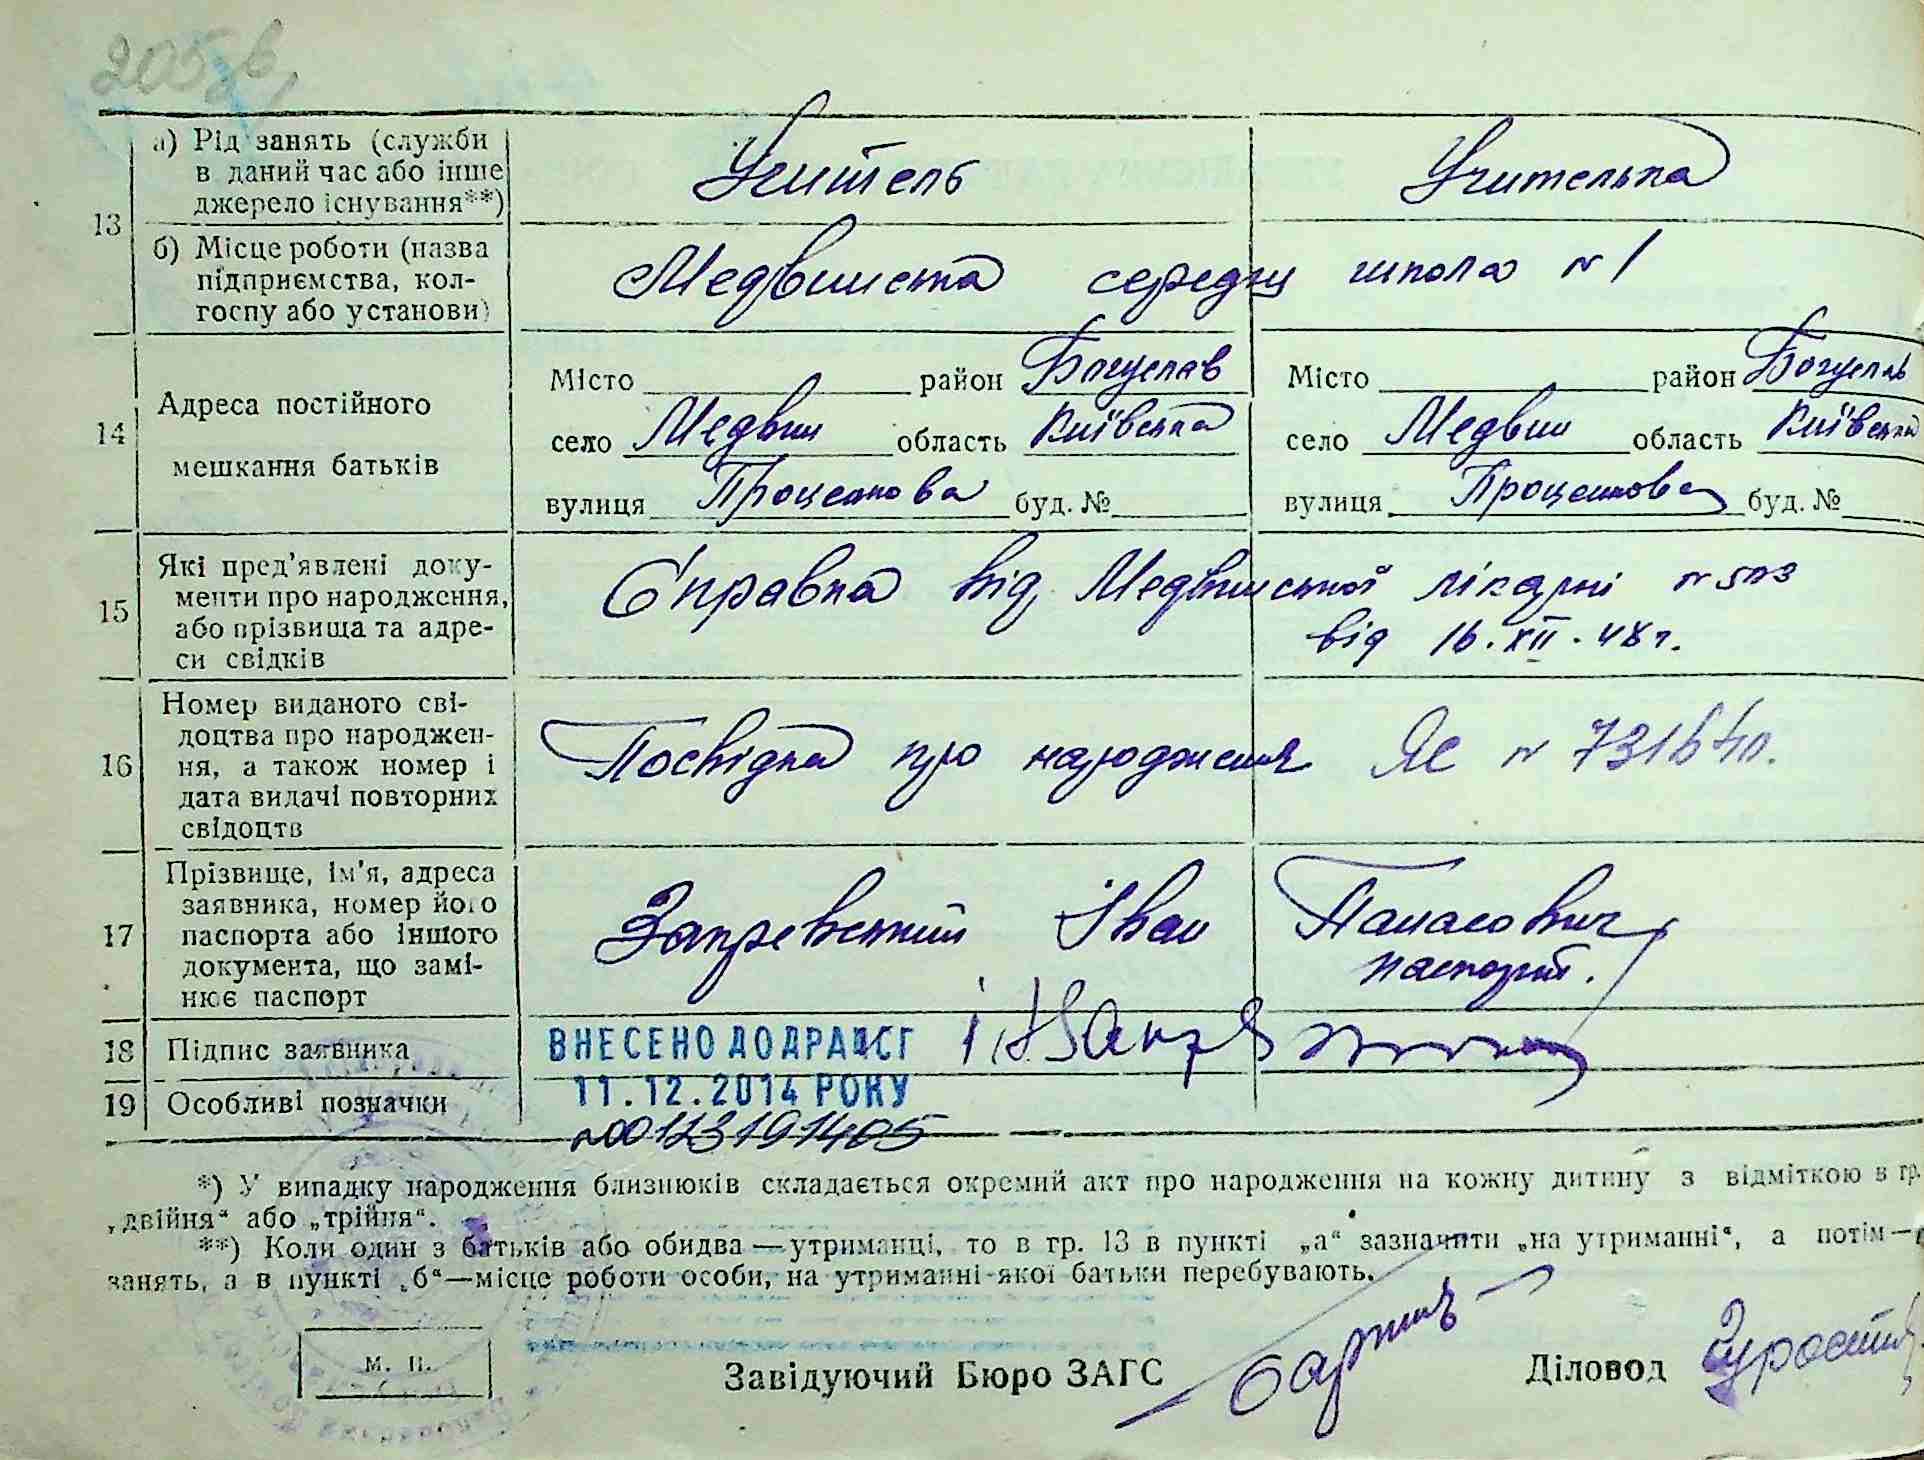 205 в
13
а) Рід занять (служби
в даний час або інше
джерело існування**)
Учитель
Учителька
б) Місце роботи (назва
підприємства, кол-
госпу або установи)
Медвинська середня школа № 1
14
Адреса постійного
мешкання батьків
Місто район Богуслав
село Медвин область Київська
вулиця Проценкова буд. №
Місто район Богуслав
село Медвин область Київська
вулиця Проценкова буд. №
15
Які пред'явлені доку-
менти про народження,
або прізвища та адре-
си свідків
Справка від Медвинської лікарні №
від 16. XII. 48 г.
16
Номер виданого сві-
доцтва про народжен-
ня, а також номер і
дата видачі повторних
свідоцтв
Посвідка про народження ЯЄ №
17
Прізвище, ім'я, адреса
заявника, номер його
паспорта або іншого
документа, що замі-
нює паспорт
Закревський Іван Панасович
паспорт.
18
Підпис заявника
ВНЕСЕНО ДО ДРАЦСГ
19
Особливі позначки
11.12.2014 РОКУ
№00123191405
*) У випадку народження близнюків складається окремий акт про народження на кожну дитину з відміткою в гр.
„двійня“ або „трійня“.
**) Коли один з батьків або обидва — утриманці, то в гр. 13 в пункті „а“ зазначити „на утриманні“, а потім —
занять, а в пункті „б“ — місце роботи особи, на утриманні якої батьки перебувають.
М. П.
Завідуючий Бюро ЗАГС
Діловод